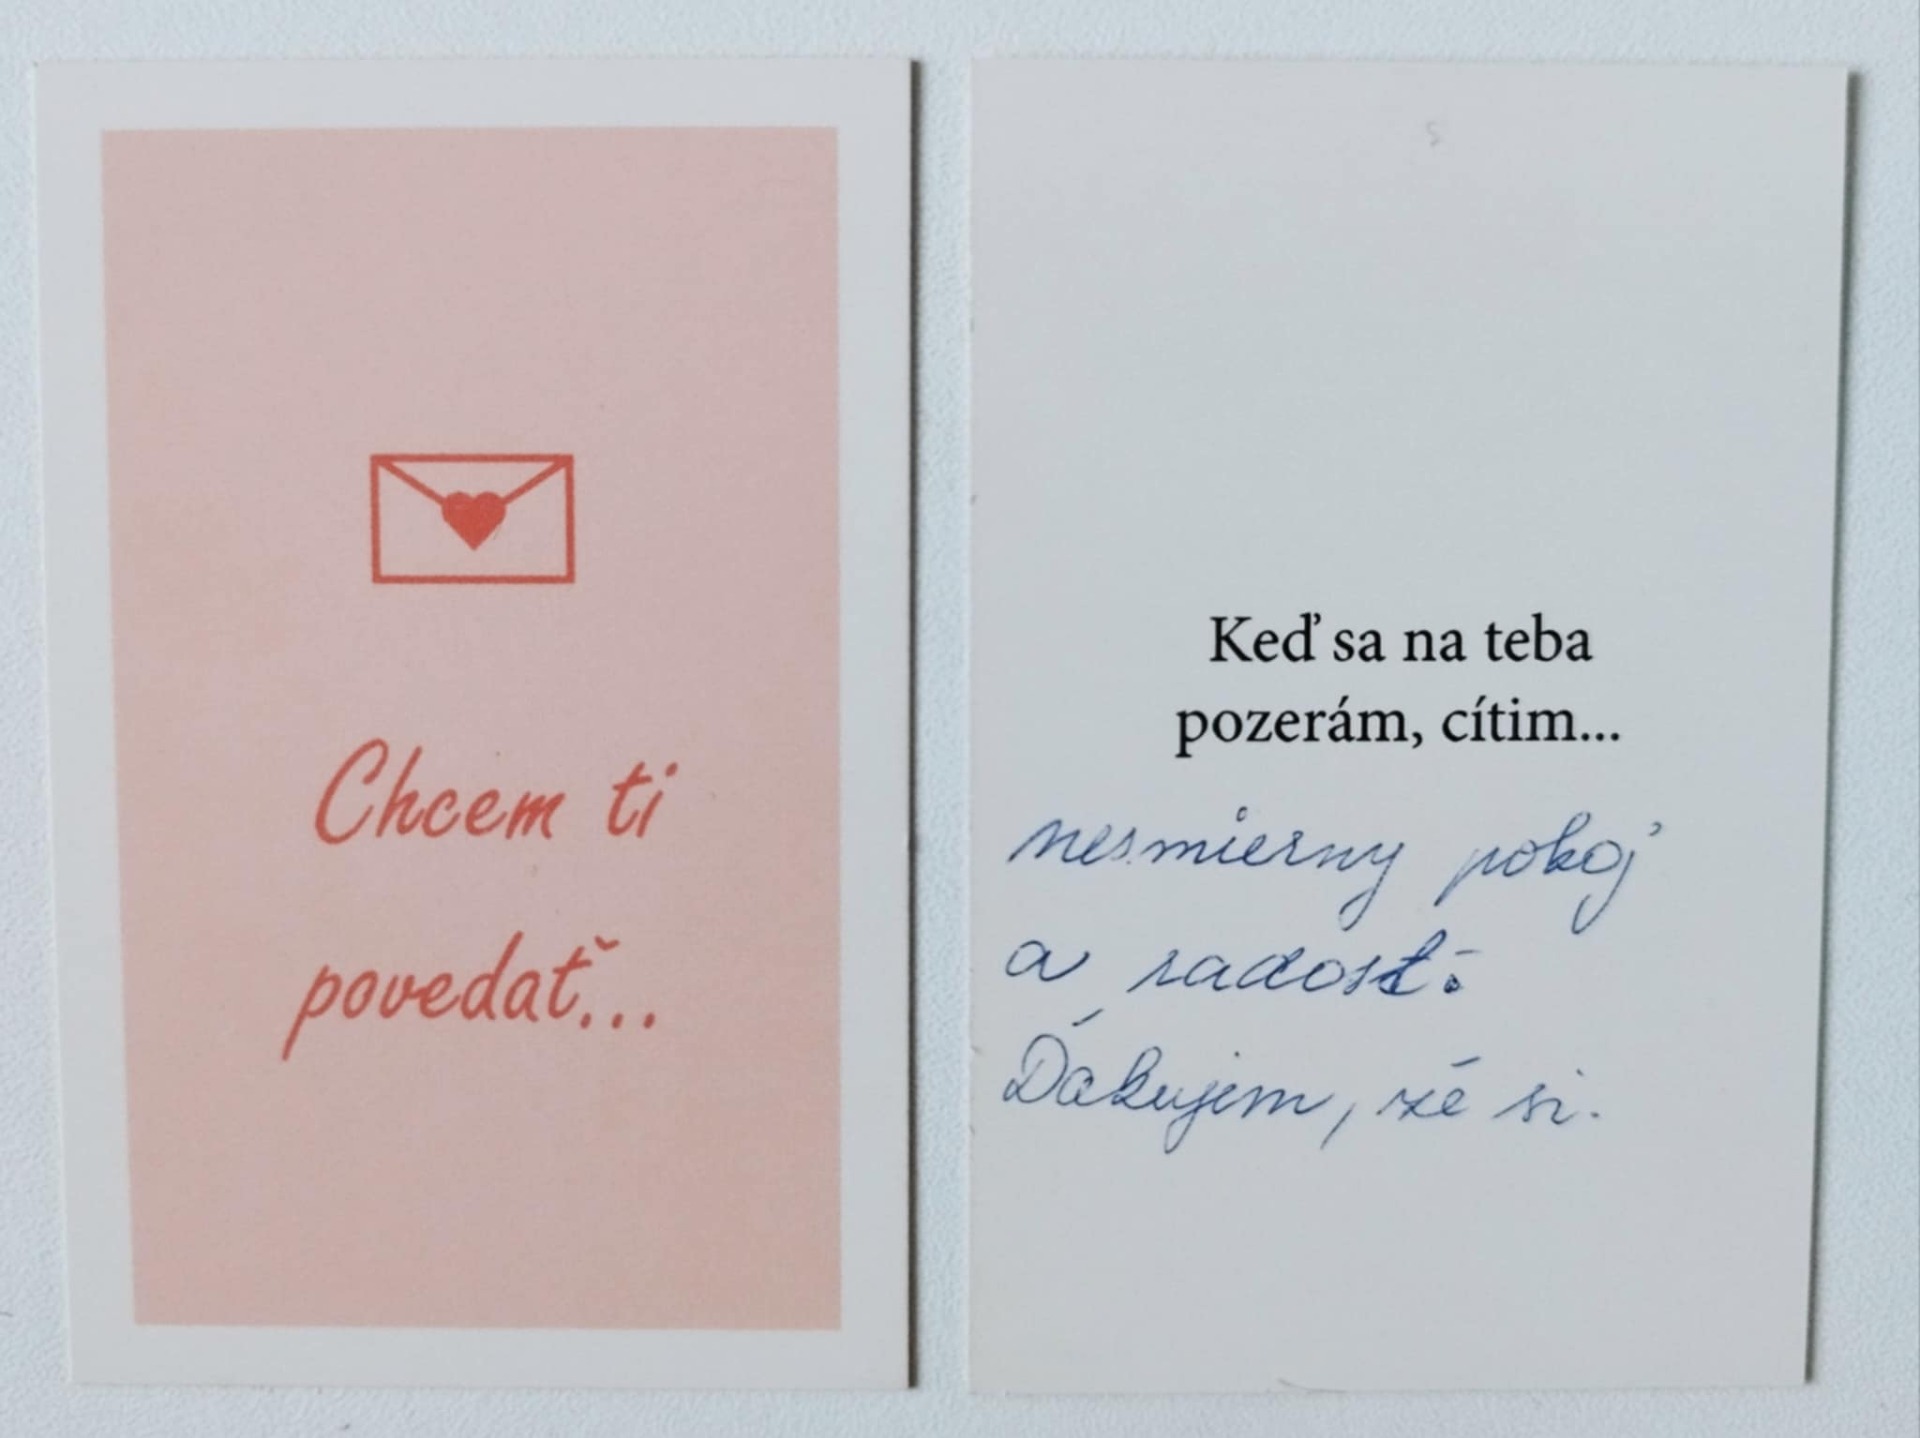 Chcem ti
povedať...
Keď sa na teba
pozerám, cítim...
nesmierny pokoj
a radosť.
Ďakujem, že si.